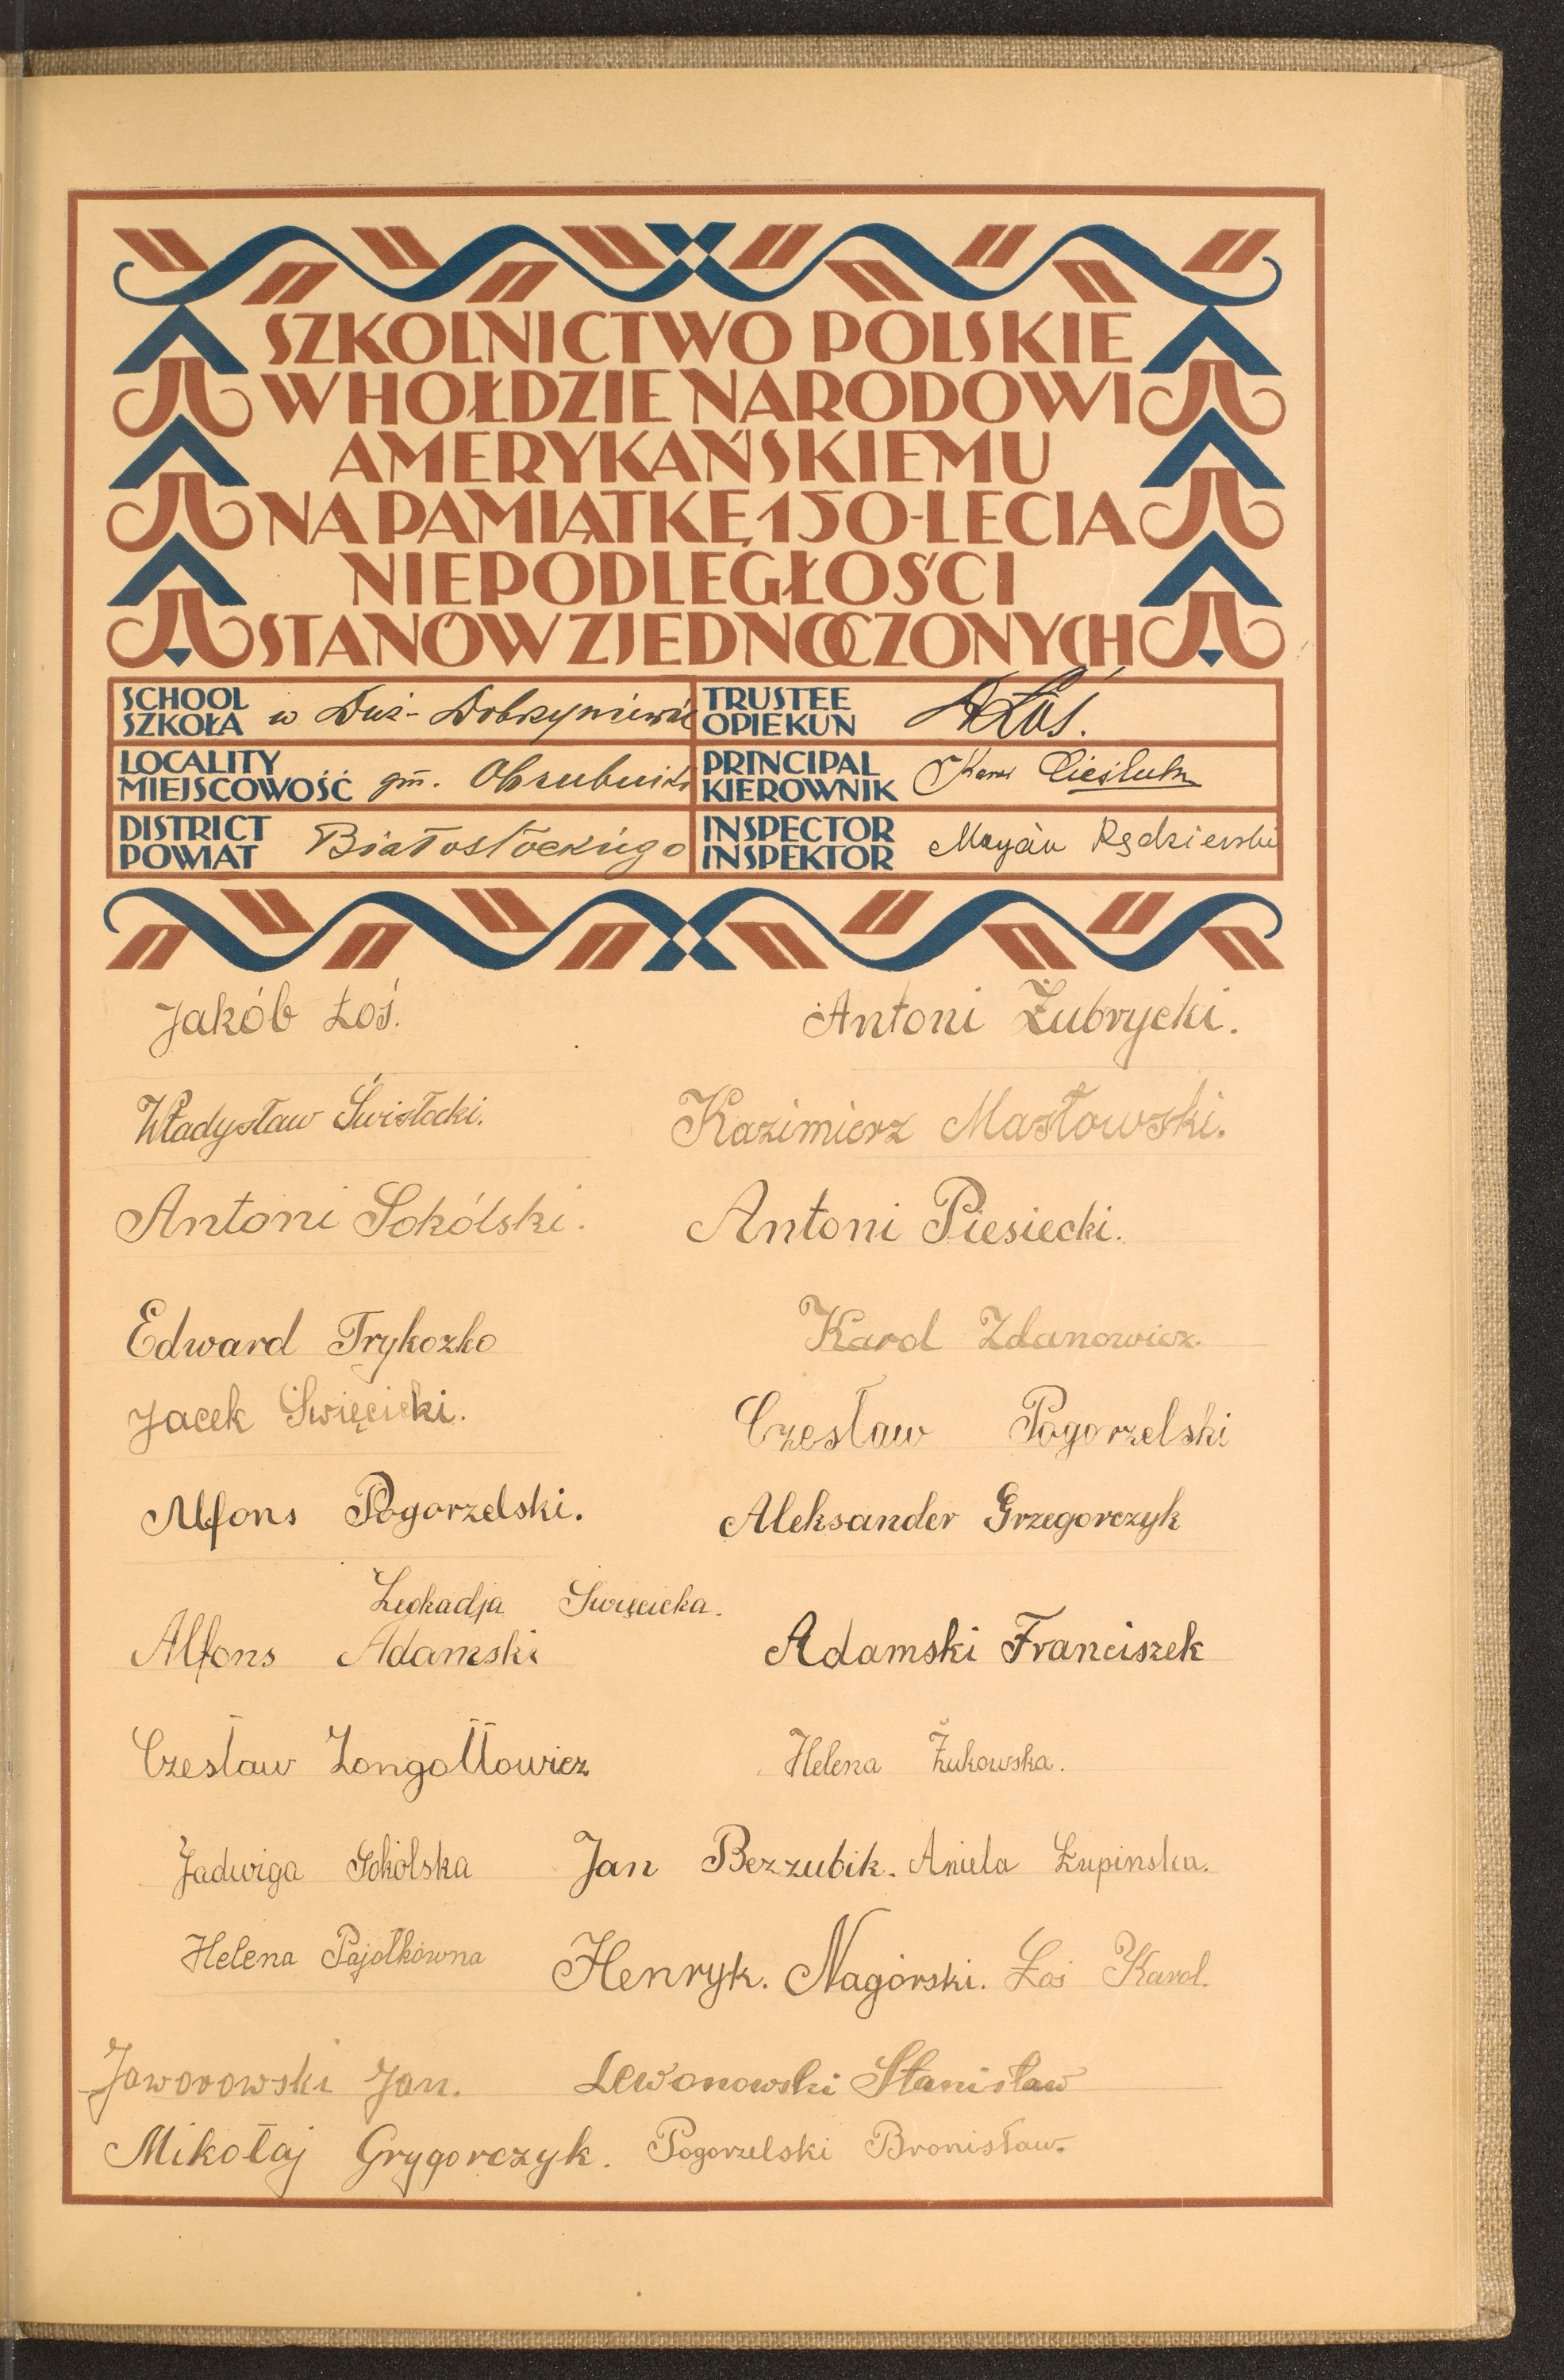 SZKOLNICTWO POLSKIE
W HOŁDZIE NARODOWI
AMERYKAŃSKIEMU
NA PAMIĄTKĘ 150-LECIA
NIEPODLEGŁOŚCI
STANÓW ZJEDNOCZONYCH
SCHOOL
SZKOŁA w Duż-
TRUSTEE
OPIEKUN Łoś.
LOCALITY
MIEJSCOWOŚĆ gm.
PRINCIPAL
KIEROWNIK
DISTRICT
POWIAT Białostockiego
INSPECTOR
INSPEKTOR
Jakób Łoś. Antoni Żubrycki.
Władysław Świsłocki. Kazimierz Masłowski.
Antoni Sokólski. Antoni Piesiecki.
Edward Trykozko Karol Zdanowicz.
Jacek Święcicki. Czesław Pogorzelski
Alfons Pogorzelski. Aleksander Grzegorczyk
Leokadja Święcicka.
Alfons Adamski Adamski Franciszek
Czesław Zongołłowicz Helena Żukowska.
Jadwiga Sokólska Jan Bezzubik. Aniela Łupinska.
Helena Pajołkówna Henryk. Nagórski. Łoś Karol.
Jaworowski Jan. Lewonowski Stanisław
Mikołaj Grygorczyk. Pogorzelski Bronisław.